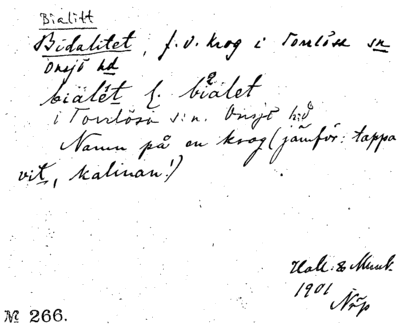 Bialitt
Bidalitet, f.d. krog i Torrlösa sn
Onsjö hd
biälét l. biälet
i Torrlösa s:n. Onsjö h:d
Namn på en krog (jämför: tappa
vit, kalinan!)
1901
№ 266.